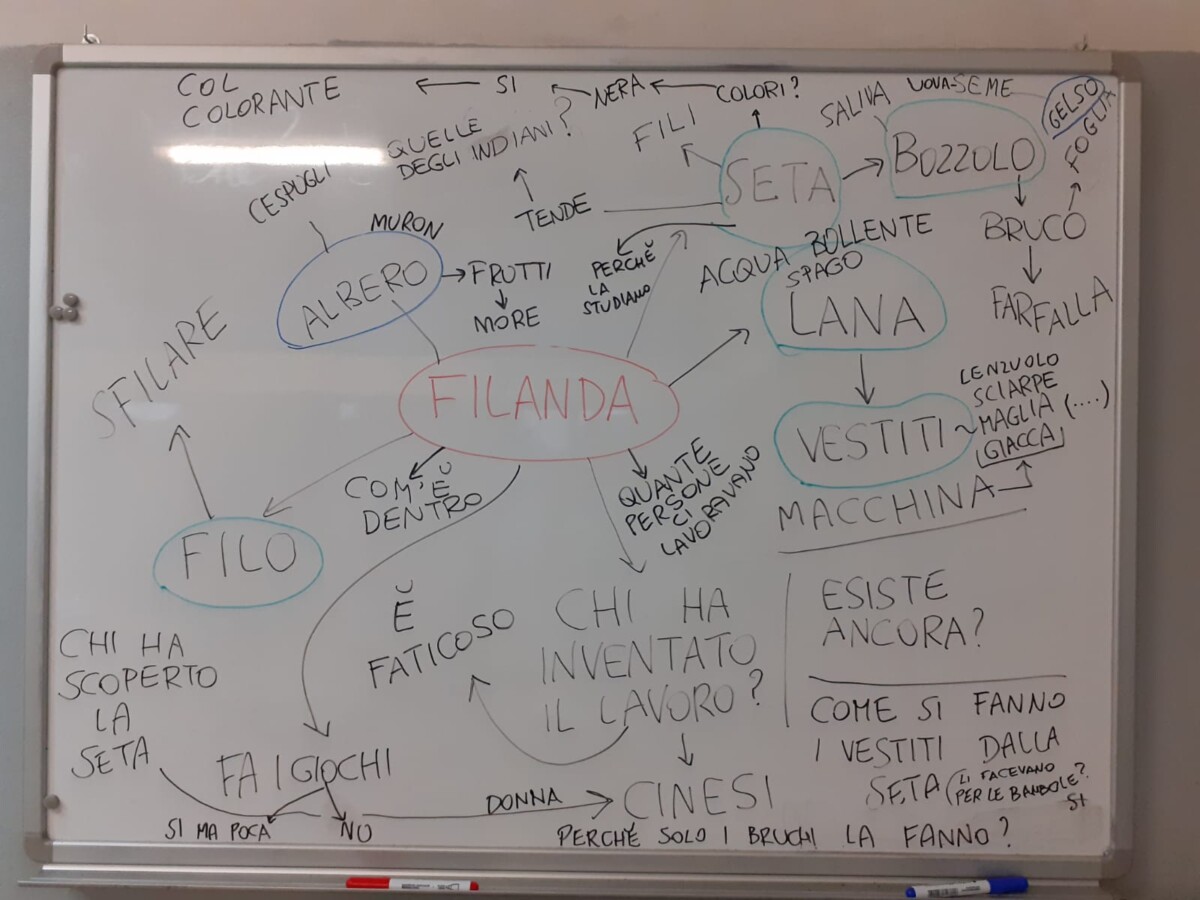 COL
COLORANTE
SI
NERA
COLORI?
SALIVA
UOVA-SEME
GELSO
FOGLIA
QUELLE
DEGLI INDIANI?
FILI
SETA
BOZZOLO
CESPUGLI
TENDE
MURON
ALBERO
FRUTTI
MORE
PERCHÈ
LA
STUDIANO
ACQUA BOLLENTE
SPAGO
LANA
BRUCO
FARFALLA
SFILARE
FILANDA
VESTITI
LENZUOLO
SCIARPE
MAGLIA (....)
GIACCA
MACCHINA
COM'È
DENTRO
QUANTE
PERSONE
CI
LAVORAVANO
FILO
È
FATICOSO
CHI HA
INVENTATO
IL LAVORO?
ESISTE
ANCORA?
CHI HA
SCOPERTO
LA
SETA
FA I GIOCHI
SI MA POCA
NO
DONNA
CINESI
COME SI FANNO
I VESTITI DALLA
SETA (LI FACEVANO
PER LE BAMBOLE?
SI
PERCHÉ SOLO I BRUCHI LA FANNO?